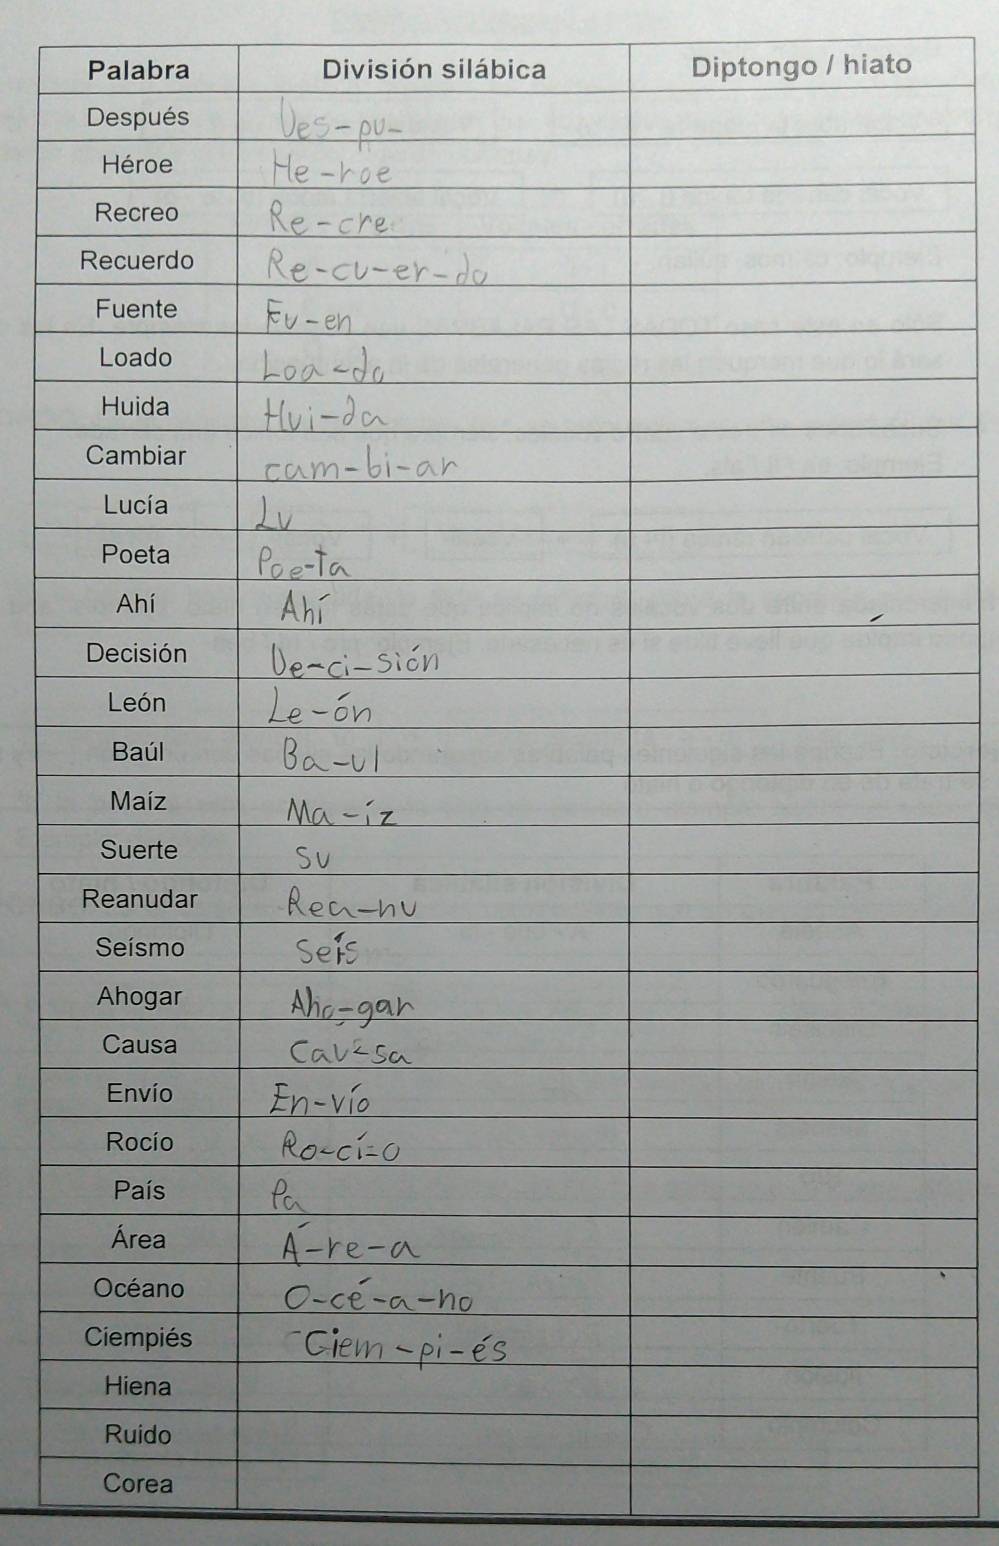 Palabra División silábica Diptongo / hiato
Después Des-pu-
Héroe He-roe
Recreo Re-cre
Recuerdo Re-cu-er-do
Fuente Fu-en
Loado Loa-do
Huida Hui-da
Cambiar cam-bi-ar
Lucía Lu
Poeta Poe-ta
Ahí Ahí
Decisión De-ci-sión
León Le-ón
Baúl Ba-ul
Maíz Ma-íz
Suerte su
Reanudar Rea-nu
Seísmo seís
Ahogar Aho-gar
Causa Cau-sa
Envío En-vío
Rocío Ro-cí-o
País Pa
Área Á-re-a
Océano O-cé-a-no
Ciempiés Ciem-pi-és
Hiena
Ruido
Corea